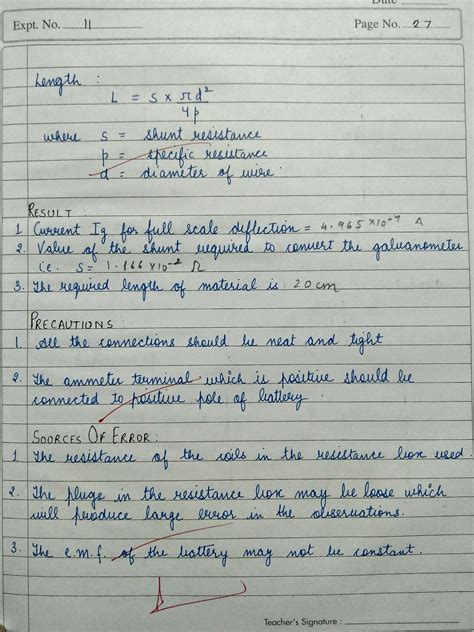 Date
Expt. No. 11
Page No. 27
Length :
L = S × πd²
4p
where s = shunt resistance
p = specific resistance
d = diameter of wire.
RESULT :
1. Current Ig for full scale deflection = 4.965 × 10⁻⁴ A
2. Value of the shunt required to convert the galvanometer
i.e. S = 1.166 × 10⁻² Ω
3. The required length of material is 20 cm
PRECAUTIONS :
1. All the connections should be neat and tight
2. The ammeter terminal which is positive should be
connected to positive pole of battery.
SOURCES OF ERROR :
1. The resistance of the coils in the resistance box used.
2. The plugs in the resistance box may be loose which
will produce large error in the observations.
3. The e.m.f. of the battery may not be constant.
Teacher's Signature :